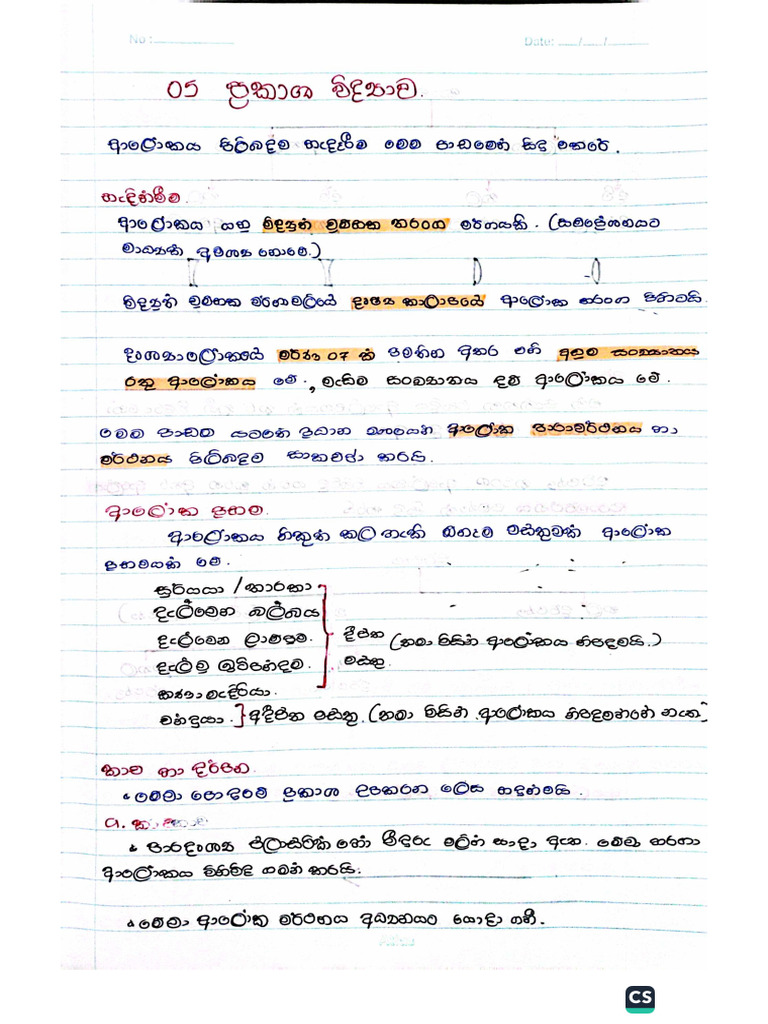 No :
Date: __/__/____
05 ප්‍රකාශ විද්‍යාව.
ආලෝකය පිළිබඳව හැදෑරීම මෙම පාඩමෙන් සිදු කෙරේ.
හැඳින්වීම
ආලෝකය යනු විද්‍යුත් චුම්භක තරංග වර්ගයකි. (සම්ප්‍රේශනයට
මාධ්‍යක් අවශ්‍ය නොවේ.)
විද්‍යුත් චුම්භක වර්ණාවලියේ දෘෂ්‍ය කලාපයේ ආලෝක තරංග පිහිටයි.
වර්ණ 07 ක් පවතින අතර එහි අඩුම සංඛ්‍යාතය
රතු ආලෝකය වේ, වැඩිම සංඛ්‍යාතය දම් ආලෝකය වේ.
මෙම පාඩම යටතේ ප්‍රධාන වශයෙන් ආලෝක පරාවර්ථනය හා
වර්ථනය පිලිබඳව සාකච්ඡා කරයි.
ආලෝක ප්‍රභව.
ආලෝකය නිකුත් කල හැකි ඕනෑම වස්තුවක් ආලෝක
ප්‍රභවයක් වේ.
සූර්යයා / තාරකා
දැල්වෙන බල්බය
දැල්වෙන ලාම්පුව.
දැල්වූ ඉටිපන්දම.
කණාමැදිරියා.
දීප්ත වස්තු (තමා විසින් ආලෝකය නිපදවයි.)
චන්ද්‍රයා. අදීප්ත වස්තු. (තමා විසින් ආලෝකය නිපදවන්නේ නැත)
කාච හා දර්පන.
• මේවා පොදුවේ ප්‍රකාශ උපකරන ලෙස හඳුන්වයි.
a. කාච
• පාරදෘශ්‍ය ප්ලාස්ටික් හෝ වීදුරු මලින් සාදා ඇත. මේවා හරහා
ආලෝකය විනිවිද ගමන් කරයි.
• මේවා ආලෝක වර්ථනය අධ්‍යනයට යොදා ගනී.
CS